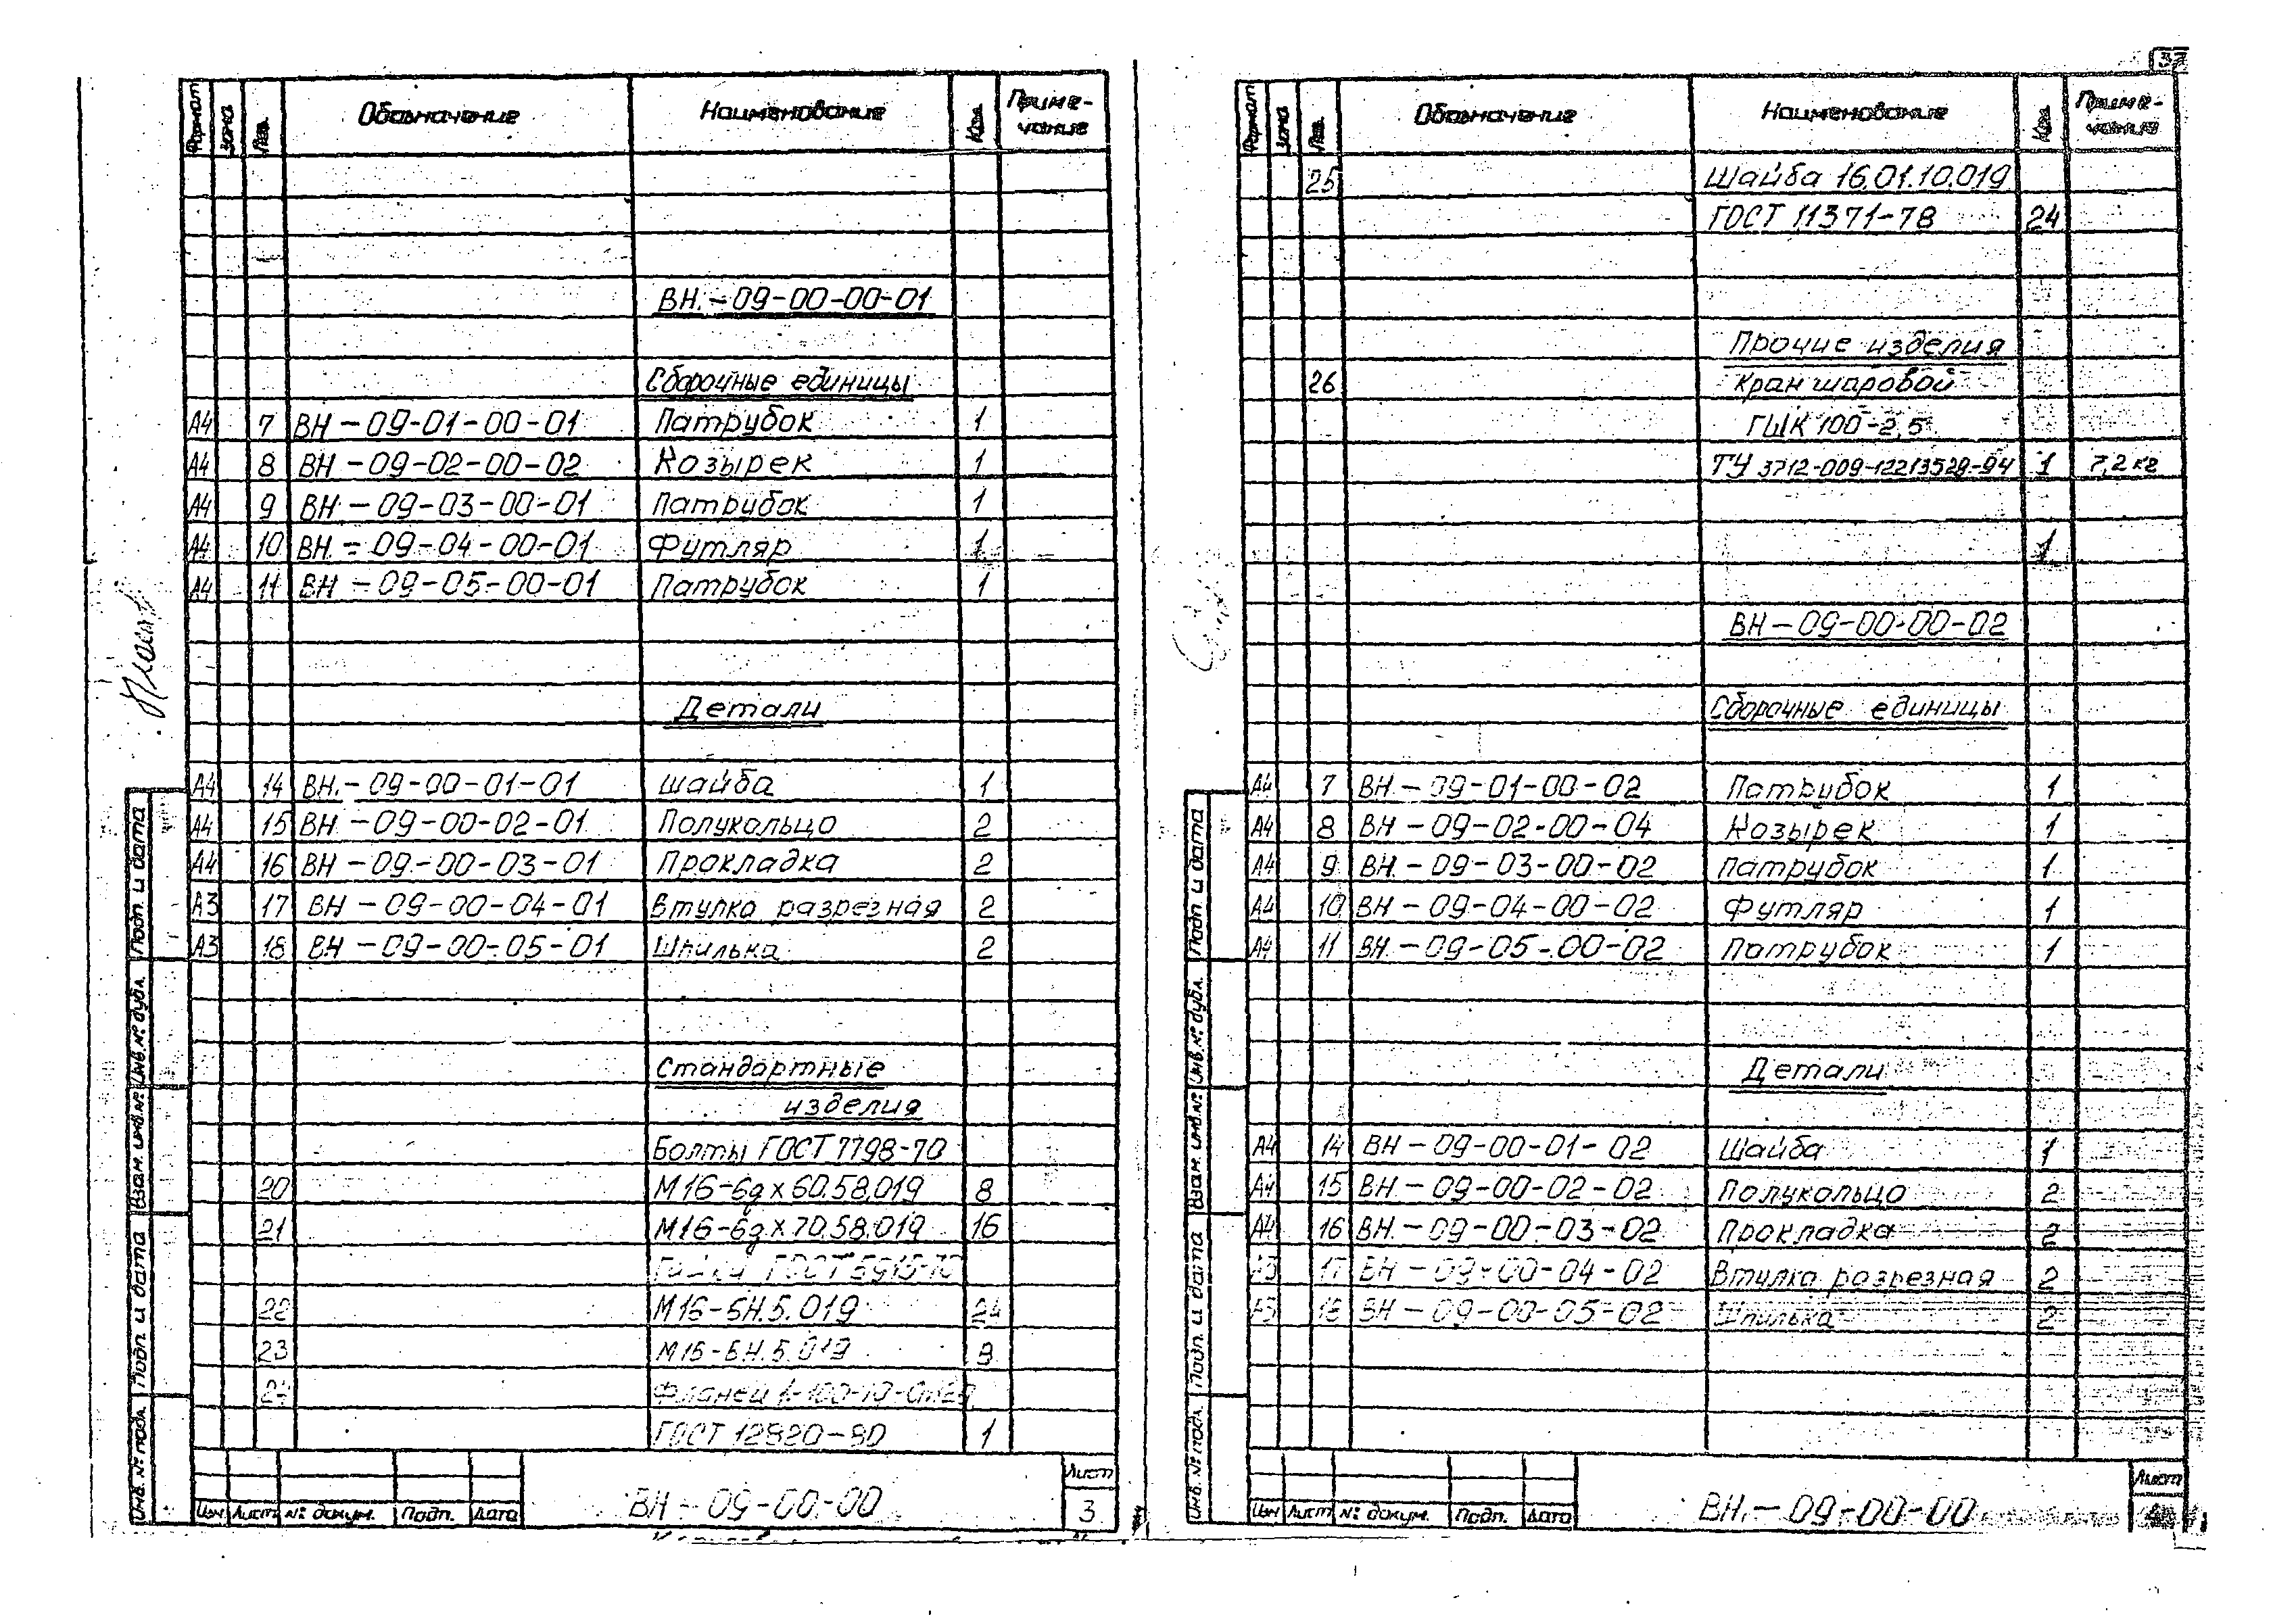 Формат Зона Поз. Обозначение Наименование Кол. Приме-
чание
ВН.-09-00-00-01
Сборочные единицы
А4 7 ВН-09-01-00-01 Патрубок 1
А4 8 ВН-09-02-00-02 Козырек 1
А4 9 ВН-09-03-00-01 Патрубок 1
А4 10 ВН-09-04-00-01 Футляр 1
А4 11 ВН-09-05-00-01 Патрубок 1
Детали
А4 14 ВН.-09-00-01-01 Шайба 1
А4 15 ВН-09-00-02-01 Полукольцо 2
А4 16 ВН-09-00-03-01 Прокладка 2
А3 17 ВН-09-00-04-01 Втулка разрезная 2
А3 18 ВН-09-00-05-01 Шпилька 2
Стандартные
изделия
Болты ГОСТ 7798-70
20 М16-6gх60.58.019 8
21 М16-6gх70.58.019 16
Гайки ГОСТ 5915-70
22 М16-6Н.5.019 24
23 М16-6Н.5.019 8
24 Фланец 1-100-10-
ГОСТ 12820-80 1
Подп. и дата
Инв.№ дубл.
Взам. инв.№
Подп. и дата
Инв.№ подл.
Изм Лист № докум. Подп. Дата
ВН-09-00-00
Лист
3
37
Формат Зона Поз. Обозначение Наименование Кол. Приме-
чание
25 Шайба 16.01.10.019
ГОСТ 11371-78 24
Прочие изделия
26 Кран шаровой
ГШК 100-2,5
ТУ 3712-009-12213529-94 1 7,2 кг
1
ВН-09-00-00-02
Сборочные единицы
А4 7 ВН-09-01-00-02 Патрубок 1
А4 8 ВН-09-02-00-04 Козырек 1
А4 9 ВН-09-03-00-02 Патрубок 1
А4 10 ВН-09-04-00-02 Футляр 1
А4 11 ВН-09-05-00-02 Патрубок 1
Детали
А4 14 ВН-09-00-01-02 Шайба 1
А4 15 ВН-09-00-02-02 Полукольцо 2
А4 16 ВН-09-00-03-02 Прокладка 2
А3 17 ВН-09-00-04-02 Втулка разрезная 2
А3 18 ВН-09-00-05-02 Шпилька 2
Подп. и дата
Инв.№ дубл.
Взам. инв.№
Подп. и дата
Инв.№ подл.
Изм Лист № докум. Подп. Дата
ВН.-09-00-00
Лист
4